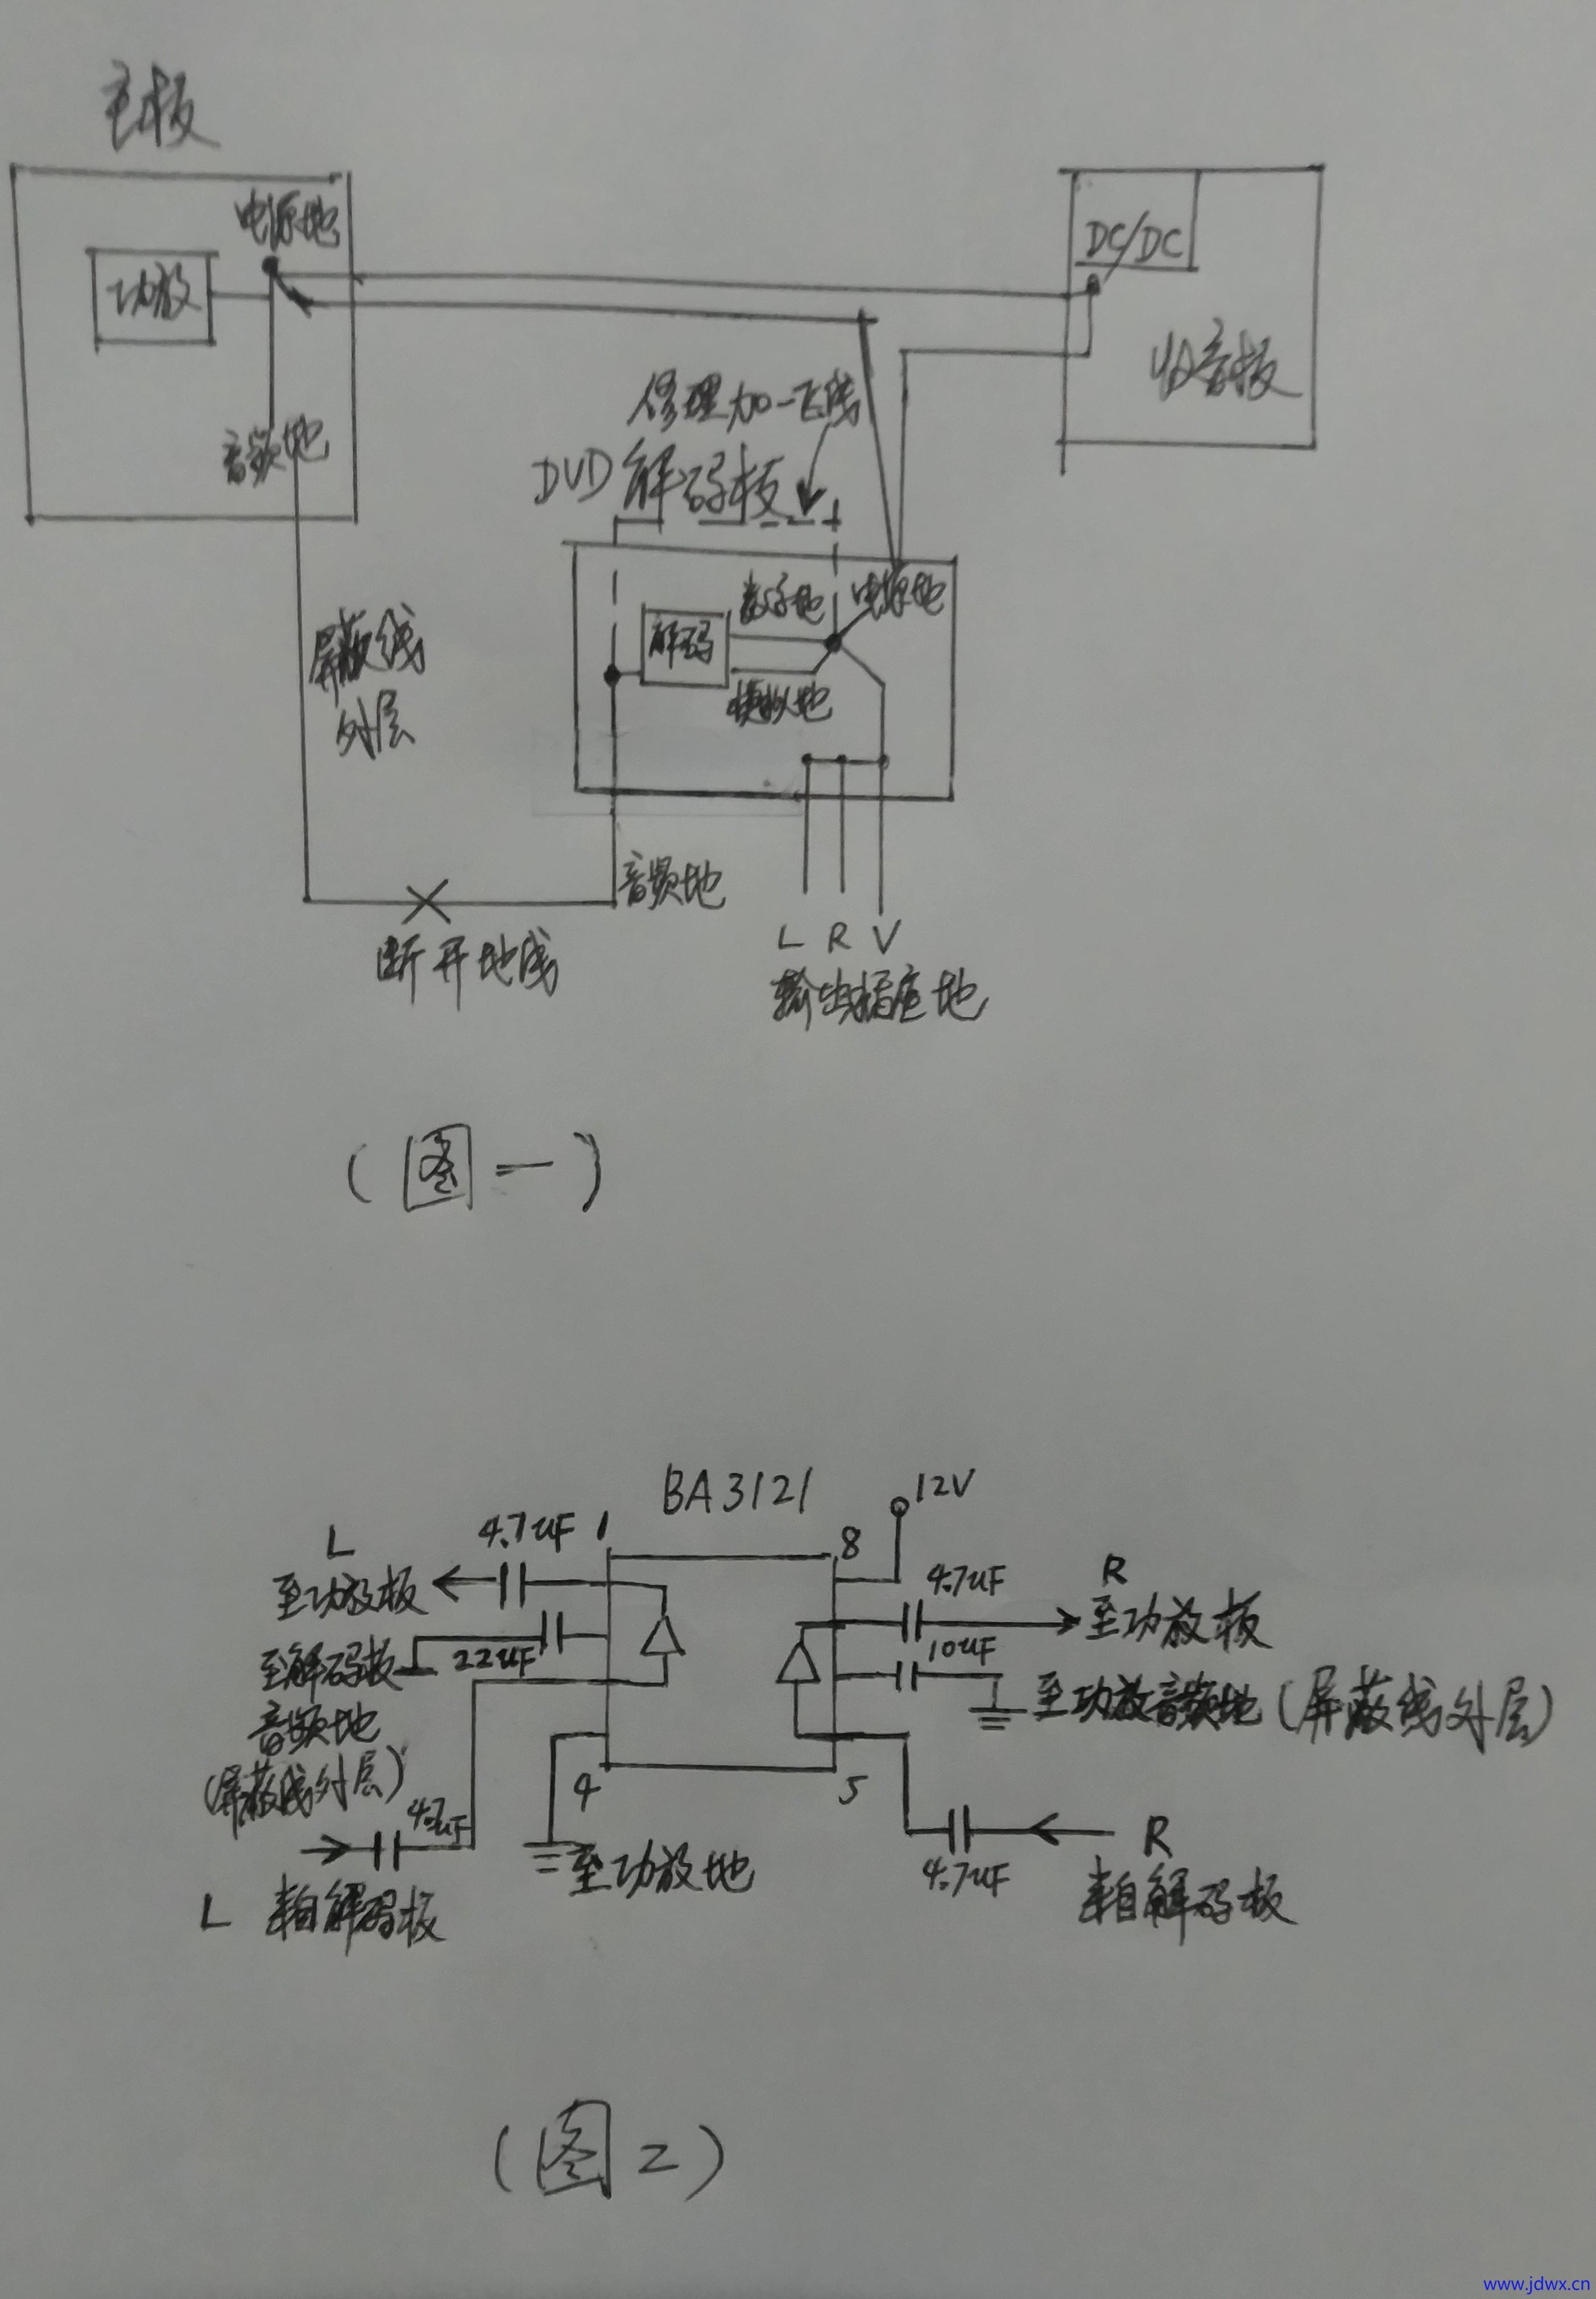 主板
电源地
功放
音频地
DC/DC
收音板
修理加一飞线
DVD解码板
数字地
电源地
解码
模拟地
屏蔽线
外层
音频地
断开地线
L R V
输出插座地
(图一)
BA3121
12V
4.7uF
1
8
L
至功放板
4.7uF
R
至功放板
22uF
至解码板
音频地
(屏蔽线外层)
10uF
至功放音频地(屏蔽线外层)
4
5
4.7uF
至功放地
L 来自解码板
4.7uF
R
来自解码板
(图2)
www.jdwx.cn